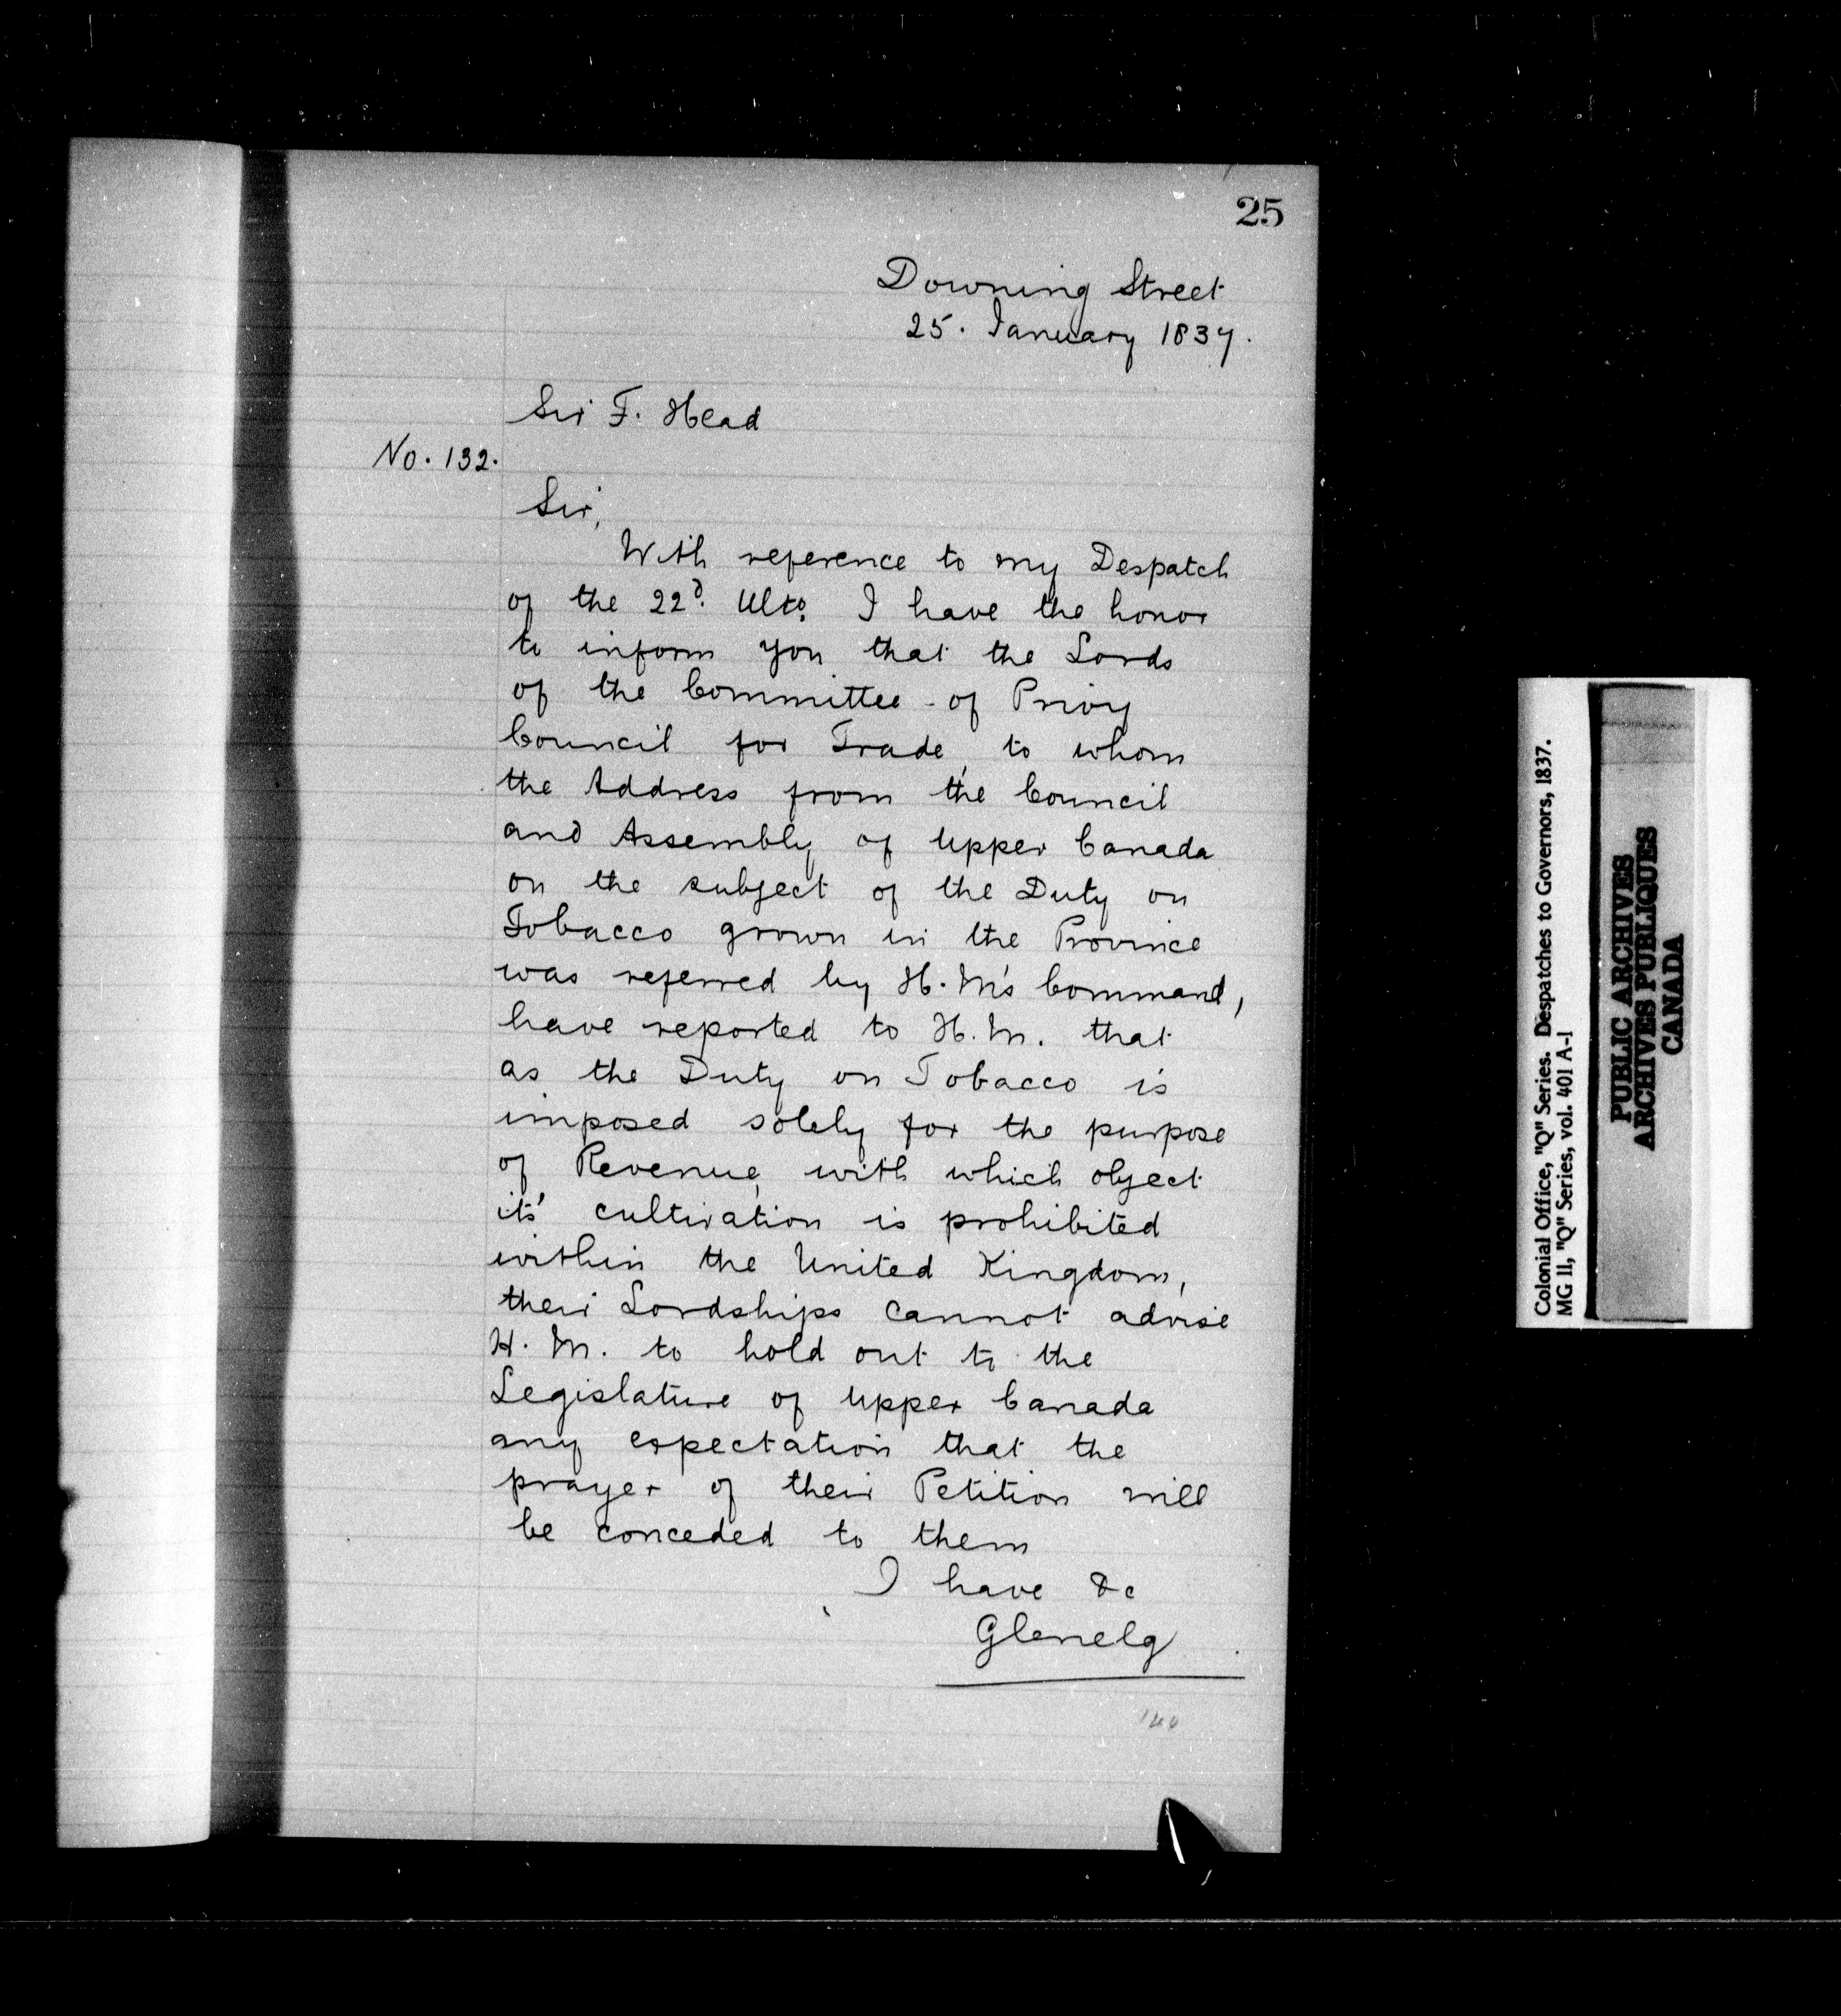 25
Downing Street
25. January 1837.
Sir F. Head
No. 132.
Sir,
With reference to my Despatch
of the 22d. Ulto. I have the honor
to inform you that the Lords
of the Committee - of Privy
Council for Trade, to whom
the Address from the Council
and Assembly of Upper Canada
on the subject of the Duty on
Tobacco grown in the Province
was referred by H. M's Command,
have reported to H. M. that
as the Duty on Tobacco is
imposed solely for the purpose
of Revenue, with which object
its' cultivation is prohibited
within the United Kingdom,
their Lordships cannot advise
H. M. to hold out to the
Legislature of Upper Canada
any expectation that the
prayer of their Petition will
be conceded to them
I have &c
Glenelg
Colonial Office, "Q" Series. Despatches to Governors, 1837.
MG 11, "Q" Series, vol. 401 A-1
PUBLIC ARCHIVES
ARCHIVES PUBLIQUES
CANADA